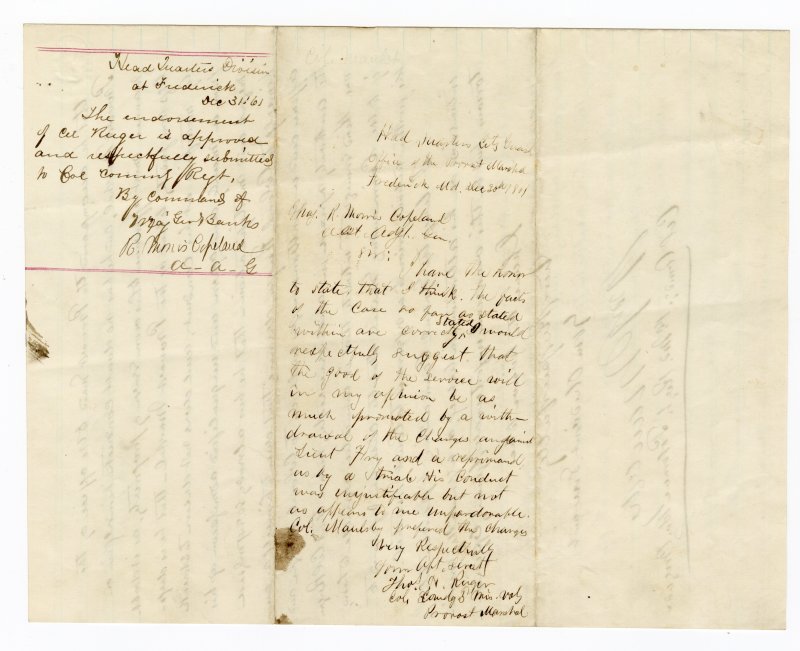 Head Quarters Division
at Frederick
Dec 31st 61
The endorsement
of Col Ruger is approved
and respectfully submitted
to Col coming Regt.
By Command of
Maj Genl Banks
R. Morris Copeland
A-A-G
Head Quarters City Guard
Office of the Provost Marshal
Frederick Md. Dec 30th 1861
R. Morris Copeland
Asst Adjt. Gen
Sir:
I have the honor
to state that I think. The facts
of the Case so far as stated
within are correctly stated I would
respectfully suggest that
the good of the service will
in my opinion be as
much promoted by a with-
drawal of the Charges against
Lieut Fry and a reprimand
as by a trial. His Conduct
was unjustifiable but not
as appears to me unpardonable.
Col. Maulsby preferred the charges
Very Respectfully
Your Obt. Servt
Tho. H. Ruger
Col. Comdg 3 Wis. Vols
Provost Marshal